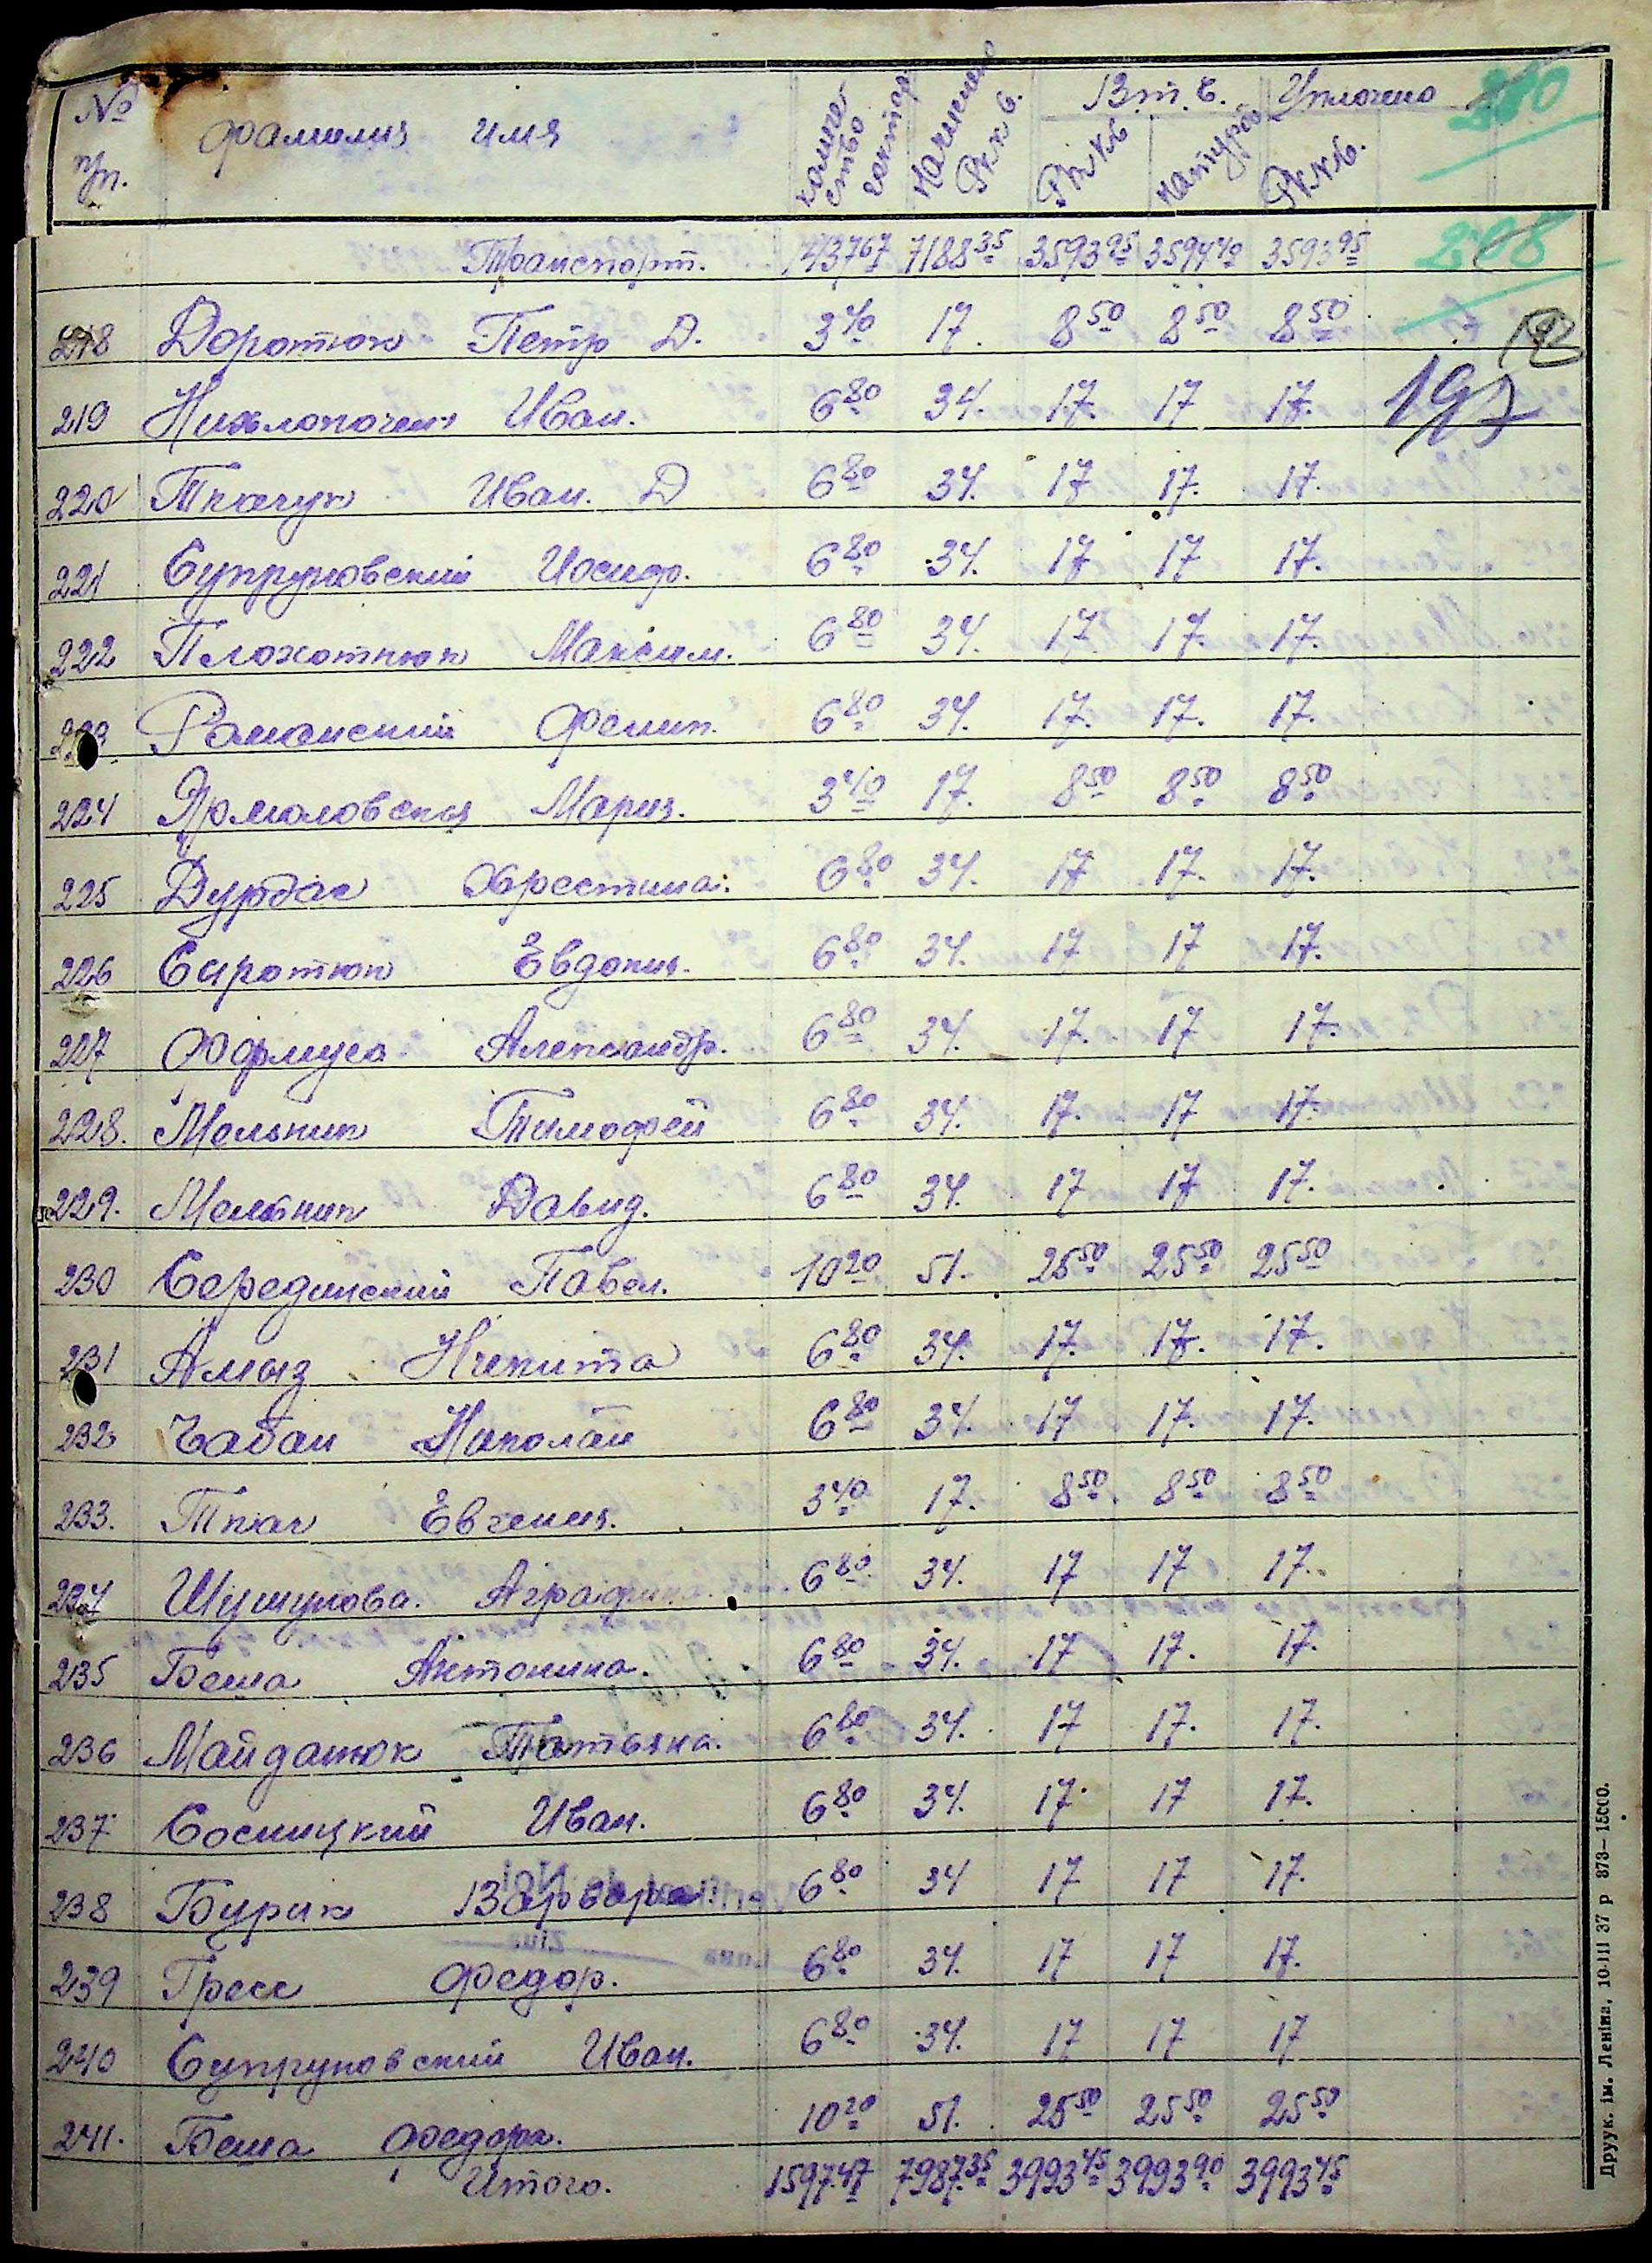 № п/п. Фамилия имя Количество гектар Начислено РККВ. В т.ч. Уплочено 210
РККВ Натурой РККВ.
Транспорт. 1437 67 7188 35 3593 95 3594 40 3593 95 208
218 Доротюк Петр Д. 3 40 17. 8 50 8 50 8 50 192
219 Нихлопочен Иван. 6 80 34. 17. 17 17. 197
220 Ткачук Иван. Д 6 80 34. 17 17. 17.
221 Супруновский Иосиф. 6 80 34. 17 17 17.
222 Плохотнюк Максим. 6 80 34. 17. 17. 17.
223 Романский Филип. 6 80 34. 17. 17. 17.
224 Ярмоловская Мария. 3 40 17. 8 50 8 50 8 50
225 Дурбас Хрестина. 6 80 34. 17 17. 17.
226 Сиротюк Евдокия. 6 80 34. 17 17 17.
227 Формуса Александр. 6 80 34. 17. 17 17.
228. Мельник Тимофей 6 80 34. 17. 17 17.
229. Мельник Давид. 6 80 34. 17 17 17.
230 Серединский Павел. 10 20 51. 25 50 25 50 25 50
231 Амыз Никита 6 80 34. 17. 17. 17.
232 Чабан Николай 6 80 34. 17 17. 17.
233. Ткач Евгения. 3 40 17. 8 50. 8 50 8 50
234 Шушунова. Аграфина. 6 80 34. 17 17 17.
235 Беша Антонина. 6 80 34. 17 17. 17.
236 Майданюк Татьяна. 6 80 34. 17 17. 17.
237 Сосницкий Иван. 6 80 34. 17. 17 17.
238 Бурик Варвара. 6 80 34 17 17 17.
239 Гресс Федор. 6 80 34. 17 17 17.
240 Супруновский Иван. 6 80 34. 17 17 17
241. Беша Федора. 10 20 51. 25 50 25 50 25 50
Итого. 1597.47 7987.35 3993 45 3993 90 3993 45
Друук. ім. Леніна, 10-III 37 р 373—15000.